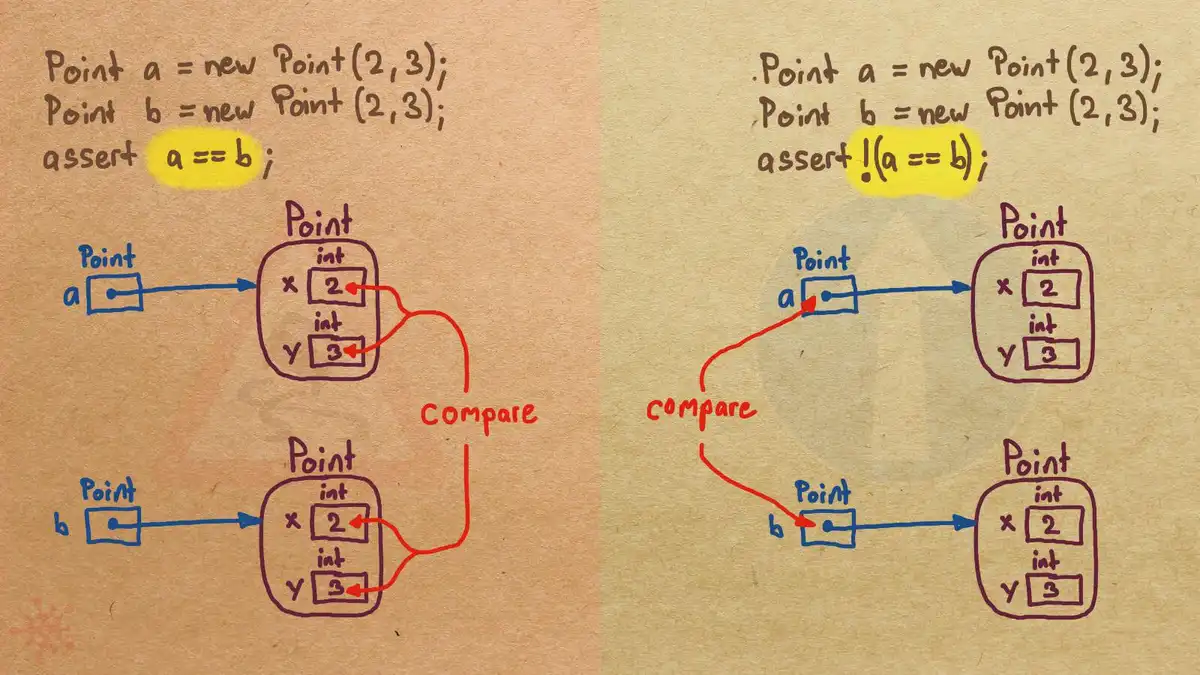 Point a = new Point(2, 3);
Point b = new Point (2, 3);
assert a == b ;
Point
Point
a
int
x 2
int
y 3
compare
Point
Point
b
int
x 2
int
y 3
Point a = new Point(2, 3);
Point b = new Point (2, 3);
assert !(a == b);
Point
Point
a
int
x 2
int
y 3
compare
Point
Point
b
int
x 2
int
y 3